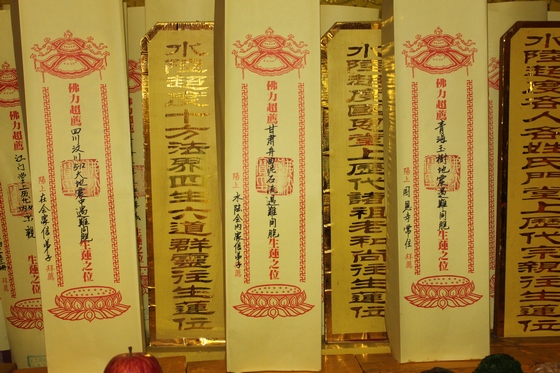 佛力超薦
生蓮之位
佛力超薦
四川汶川512大地震中遇難同胞
生蓮之位
陽上
在会众信弟子
拜薦
水陸超度十方法界四生六道群靈往生蓮位
佛力超薦
甘肃舟曲泥石流遇難同胞
生蓮之位
陽上
水陆会内众信弟子
拜薦
水陸超度堂上歷代諸祖老和尚往生蓮位
佛力超薦
青海玉樹地震遇難同胞
生蓮之位
陽上
寺常住
拜薦
水陸超度各人各姓氏門堂上歷代宗親往生蓮位